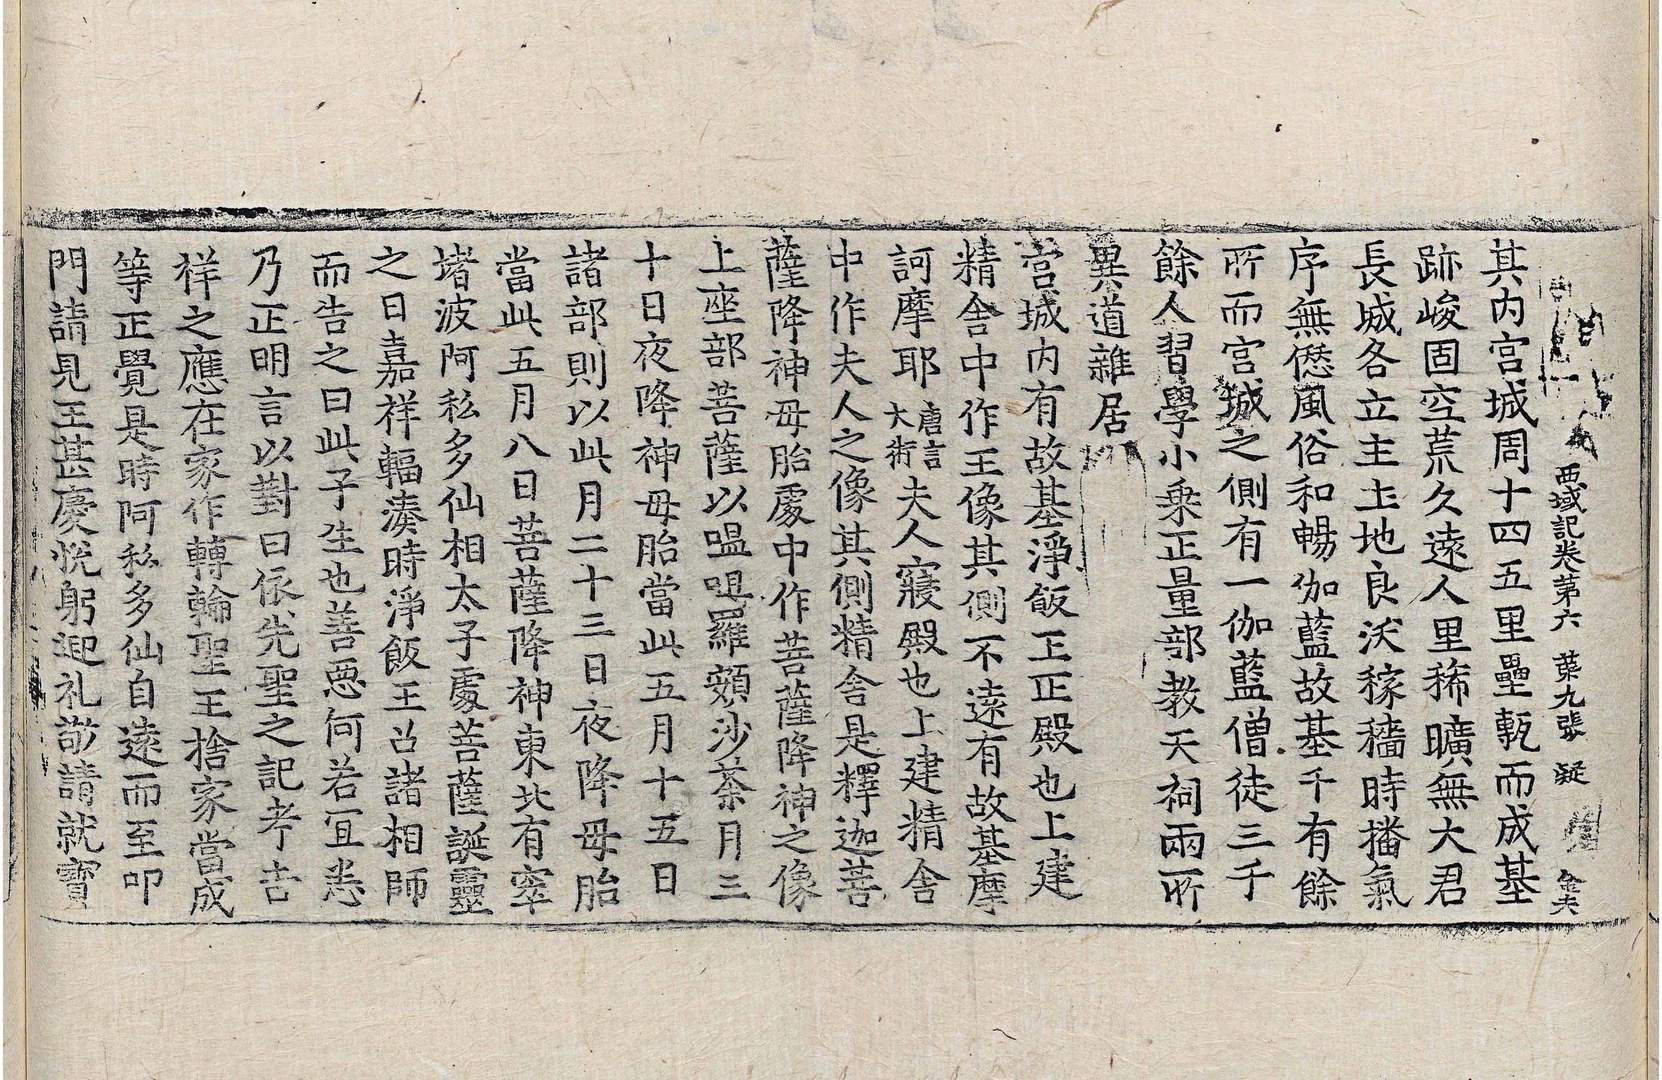 西域記卷第六 葉九張 凝 金夫
其内宮城周十四五里壘甎而成基
跡峻固空荒久遠人里稀曠無大君
長城各立主土地良沃稼穡時播氣
序無僁風俗和暢伽藍故基千有餘
所而宮城之側有一伽藍僧徒三千
餘人習學小乗正量部教天祠兩所
異道雜居
宮城内有故基淨飯王正殿也上建
精舍中作王像其側不遠有故基摩
訶摩耶唐言大術夫人寢殿也上建精舍
中作夫人之像其側精舍是釋迦菩
薩降神母胎處中作菩薩降神之像
上座部菩薩以嗢呾羅頞沙荼月三
十日夜降神母胎當此五月十五日
諸部則以此月二十三日夜降母胎
當此五月八日菩薩降神東北有窣
堵波阿私多仙相太子處菩薩誕靈
之日嘉祥輻湊時淨飯王召諸相師
而告之曰此子生也善惡何若冝悉
乃正明言以對曰依先聖之記考吉
祥之應在家作轉輪聖王捨家當成
等正覺是時阿私多仙自遠而至叩
門請見王甚慶悅躬迎礼敬請就寶